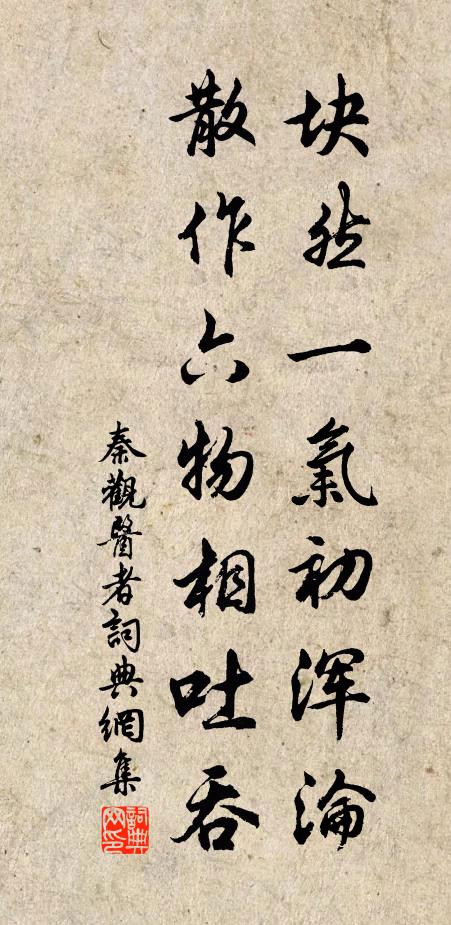 块然一氣初渾淪
散作六物相吐吞
秦觀醫者詞典網集
詞典網印